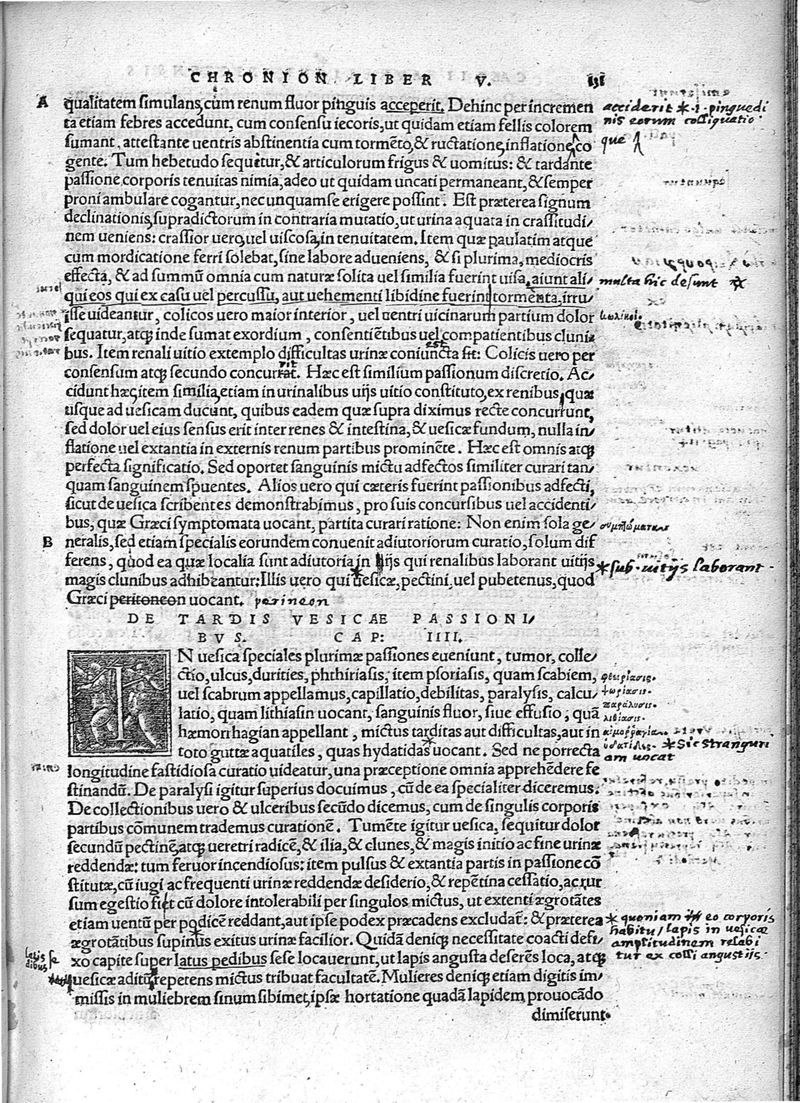 CHRONION LIBER V.
A qualitatem simulans, cum renum fluor pinguis acceperit. Dehinc per incremen
ta etiam febres accedunt, cum consensu iecoris, ut quidam etiam fellis colorem
sumant, attestante uentris abstinentia cum tormēto, & ructatione, inflatione, co
gente. Tum hebetudo sequitur, & articulorum frigus & uomitus: & tardante
passione, corporis tenuitas nimia, adeo ut quidam uncati permaneant, & semper
proni ambulare cogantur, nec unquam se erigere possint. Est præterea signum
declinationis, supradictorum in contraria mutatio, ut urina aquata in crassitudi/
nem ueniens: crassior uero, uel uiscosa, in tenuitatem. Item quæ paulatim atque
cum mordicatione ferri solebat, sine labore adueniens, & si plurima, mediocris
effecta, & ad summū omnia cum naturæ solita uel similia fuerint uisa, aiunt ali/
qui eos qui ex casu uel percussu, aut uehementi libidine fuerint tormenta, irru/
isse uideantur, colicos uero maior interior, uel uentri uicinarum partium dolor
sequatur, atq; inde sumat exordium, consentiētibus uel compatientibus cluni/
bus. Item renali uitio extemplo difficultas urinæ coniuncta sit: Colicis uero per
consensum atq; secundo concurrat. Hæc est similium passionum discretio. Ac/
cidunt hæc item similia, etiam in urinalibus uijs uitio constituto, ex renibus, quæ
usque ad uesicam ducunt, quibus eadem quæ supra diximus recte concurrunt,
sed dolor uel eius sensus erit inter renes & intestina, & uesicæ fundum, nulla in/
flatione uel extantia in externis renum partibus prominēte. Hæc est omnis atq;
perfecta significatio. Sed oportet sanguinis mictu adfectos similiter curari tan/
quam sanguinem spuentes. Alios uero qui cæteris fuerint passionibus adfecti,
sicut de uesica scribentes demonstrabimus, pro suis concursibus uel accidenti/
bus, quæ Græci symptomata uocant, partita curari ratione: Non enim sola ge/
B neralis, sed etiam specialis eorundem conuenit adiutoriorum curatio, solum dif
ferens, quod ea quæ localia sunt adiutoria in ijs qui renalibus laborant uitijs
magis clunibus adhibeantur: Illis uero qui uesicæ, pectini, uel pubetenus, quod
Græci peritoneon uocant. perineon
DE TARDIS VESICAE PASSIONI/
BVS. CAP: IIII.
IN uesica speciales plurimæ passiones eueniunt, tumor, colle/
ctio, ulcus, durities, phthiriasis, item psoriasis, quam scabiem,
uel scabrum appellamus, capillatio, debilitas, paralysis, calcu/
latio, quam lithiasin uocant, sanguinis fluor, siue effusio, quā
hæmorrhagian appellant, mictus tarditas aut difficultas, aut in
toto guttæ aquatiles, quas hydatidas uocant. Sed ne porrecta
longitudine fastidiosa curatio uideatur, una præceptione omnia apprehēdere fe
stinandū. De paralysi igitur superius docuimus, cū de ea specialiter diceremus.
De collectionibus uero & ulceribus secūdo dicemus, cum de singulis corporis
partibus cōmunem trademus curationē. Tumēte igitur uesica, sequitur dolor
secundū pectinē, atq; ueretri radicē, & ilia, & clunes, & magis initio ac fine urinæ
reddendæ: tum feruor incendiosus: item pulsus & extantia partis in passione cō
stitutæ, cū iugi ac frequenti urinæ reddendæ desiderio, & repētina cessatio, ac rur
sum egestio fiet cū dolore intolerabili per singulos mictus, ut extenti ægrotātes
etiam uentū per podicē reddant, aut ipse podex præcadens excludat: & præterea
ægrotātibus supinus exitus urinæ facilior. Quidā deniq; necessitate coacti defi/
xo capite super latus pedibus sese locauerunt, ut lapis angusta deserēs loca, atq;
uesicæ aditū repetens mictus tribuat facultatē. Mulieres deniq; etiam digitis im/
missis in muliebrem sinum sibimet, ipsæ hortatione quadā lapidem prouocādo
dimiserunt.
acciderit * .i. pinguedi
nis eorum colliquatio.
que
multa hic desunt
* sub. uitijs laborant.
* Sic stranguri
am uocat
* quoniam eo corporis
habitu, lapis in uesicæ
amplitudinem relabi
tur ex colli angustijs.